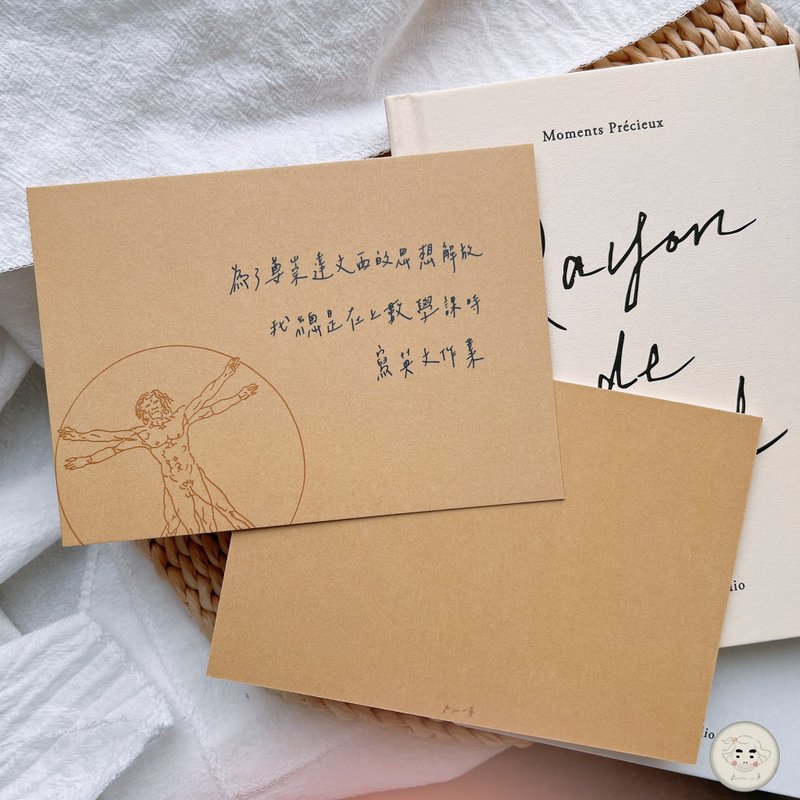 為了尊崇達文西的思想解放
我總是在上數學課時
寫英文作業
Moments Précieux
Rayon
de